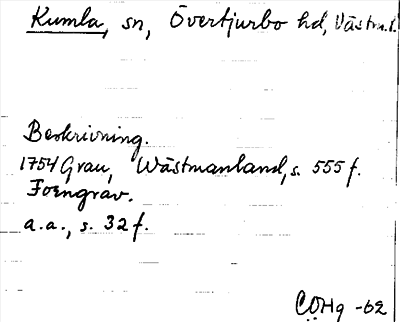 Kumla, sn, Övertjurbo hd, Västm.l.
Beskrivning.
1754 Grau, Wästmanland, s. 555 f.
Forngrav.
a.a., s. 32 f.
COHg -62